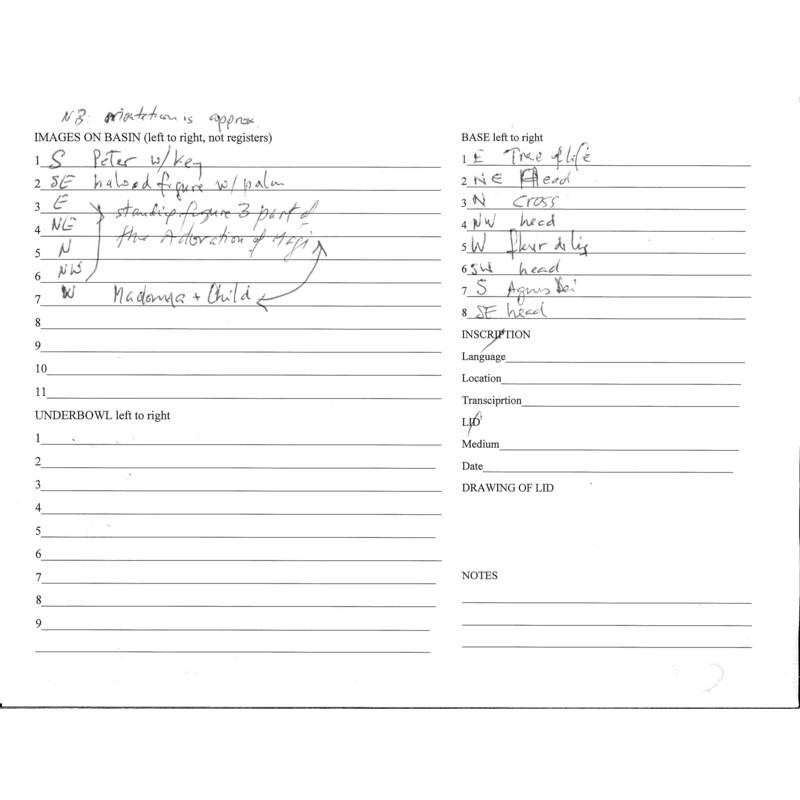 NB: orientation is approx.
IMAGES ON BASIN (left to right, not registers)
1 S Peter w/ key
2 SE haloed figure w/ palm
3 E standing figure 3 part of
4 NE the Adoration of Magi
5 N
6 NW
7 W Madonna + Child
8
9
10
11
UNDERBOWL left to right
1
2
3
4
5
6
7
8
9
BASE left to right
1 E Tree of life
2 NE Head
3 N cross
4 NW head
5 W fleur de lis
6 SW head
7 S Agnus Dei
8 SE head
INSCRIPTION
Language
Location
Transciprtion
LID
Medium
Date
DRAWING OF LID
NOTES